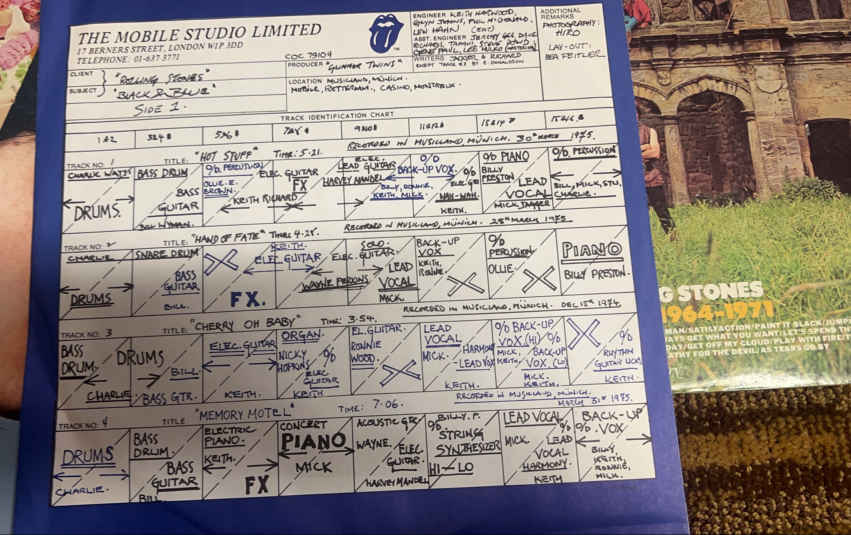 THE MOBILE STUDIO LIMITED
17 BERNERS STREET, LONDON W1P 3DD
TELEPHONE: 01-637 3771
COC 79104
CLIENT "ROLLING STONES"
SUBJECT "BLACK & BLUE"
SIDE 1.
PRODUCER "GLIMMER TWINS"
LOCATION MUSICLAND, MÜNICH.
MOBILE, ROTTERDAM., CASINO, MONTREUX.
ENGINEER KEITH HARWOOD,
GLYN JOHNS, PHIL McDONALD,
LEW HAHN
ASST. ENGINEER JEREMY GEE, DAVE
RICHARDS, TAPANI
GENE PAUL, LEE HULKO
WRITERS JAGGER & RICHARD
EXCEPT TRACK 3 BY E. DONALDSON
ADDITIONAL
REMARKS
PHOTOGRAPHY:
HIRO
LAY-OUT.
BEA FEITLER.
TRACK IDENTIFICATION CHART
1&2 3&4 5&6 7&8 9&10 11&12 13&14 15&16
TRACK NO. 1 TITLE: "HOT STUFF" TIME: 5-21. RECORDED IN MUSICLAND MÜNICH. 30th MARCH 1975.
CHARLIE WATTS
DRUMS.
BASS DRUM
BASS
GUITAR
BILL WYMAN.
% PERCUTION
OLLIE. E.
BROWN.
KEITH RICHARD
ELEC. GUITAR
FX
ELEC.
LEAD GUITAR
HARVEY MANDEL
%
BACK-UP VOX.
BILLY, RONNIE,
KEITH, MICK
%
ELEC. GTR
WAH-WAH.
KEITH.
% PIANO
BILLY
PRESTON
LEAD
VOCAL
MICK JAGGER
% PERCUSSION
BILL, MICK, STU,
CHARLIE.
TRACK NO. 2 TITLE: "HAND OF FATE" TIME: 4-28. RECORDED IN MUSICLAND, MÜNICH. 25th MARCH 1975.
CHARLIE
DRUMS
SNARE DRUM
BASS
GUITAR
BILL.
KEITH.
ELEC GUITAR
FX.
WAYNE PERKINS
SOLO.
ELEC. GUITAR.
LEAD
VOCAL
MICK.
BACK-UP
VOX
KEITH,
RONNIE.
%
PERCUSSION
OLLIE
PIANO
BILLY PRESTON.
TRACK NO. 3 TITLE: "CHERRY OH BABY" TIME: 3-54. RECORDED IN MUSICLAND, MÜNICH. DEC 15th 1974.
BASS
DRUM.
DRUMS
CHARLIE
BILL
BASS GTR.
ELEC. GUITAR
KEITH.
ORGAN.
NICKY
HOPKINS
%
ELEC
GUITAR
KEITH
EL. GUITAR
RONNIE
WOOD.
LEAD
VOCAL
MICK.
HARMONY
LEAD VOX
KEITH.
% BACK-UP
VOX. (HI) %
MICK, BACK-UP
KEITH. VOX (LO)
MICK.
KEITH.
%
RHYTHM
KEITH.
TRACK NO. 4 TITLE: "MEMORY MOTEL" TIME: 7-06. RECORDED IN MUSICLAND, MÜNICH. MARCH 31st 1975.
DRUMS
CHARLIE.
BASS
DRUM.
BASS
GUITAR
BILL
ELECTRIC
PIANO.
KEITH.
FX
CONCERT
PIANO
MICK
ACOUSTIC GTR
WAYNE.
ELEC.
GUITAR.
HARVEY MANDEL
BILLY. P.
% STRINGS
SYNTHESIZER
HI - LO
LEAD VOCAL
MICK. %
LEAD
VOCAL
HARMONY.
KEITH
BACK-UP
% VOX.
BILLY,
KEITH,
RONNIE,
MICK.
G STONES
1964-1971